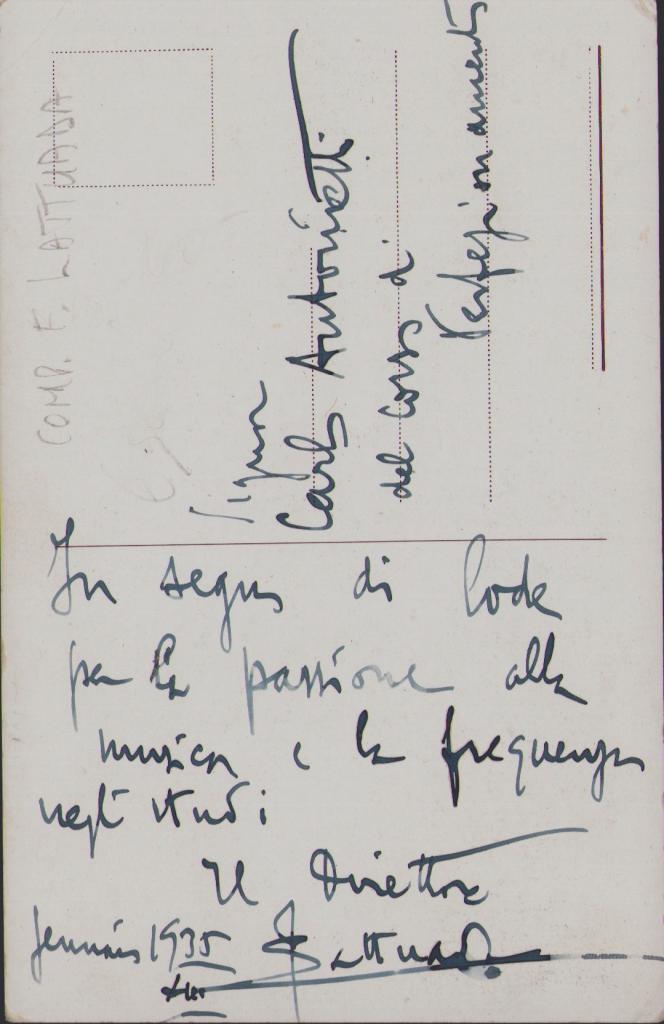 COMP. F. LATTUADA
Signor
Carlo Antonietti
del Corso di
Perfezionamento
In segno di lode
per la passione alla
musica e la frequenza
negli studi
Il Direttore
Gennaio 1935 F Lattuada
XIII